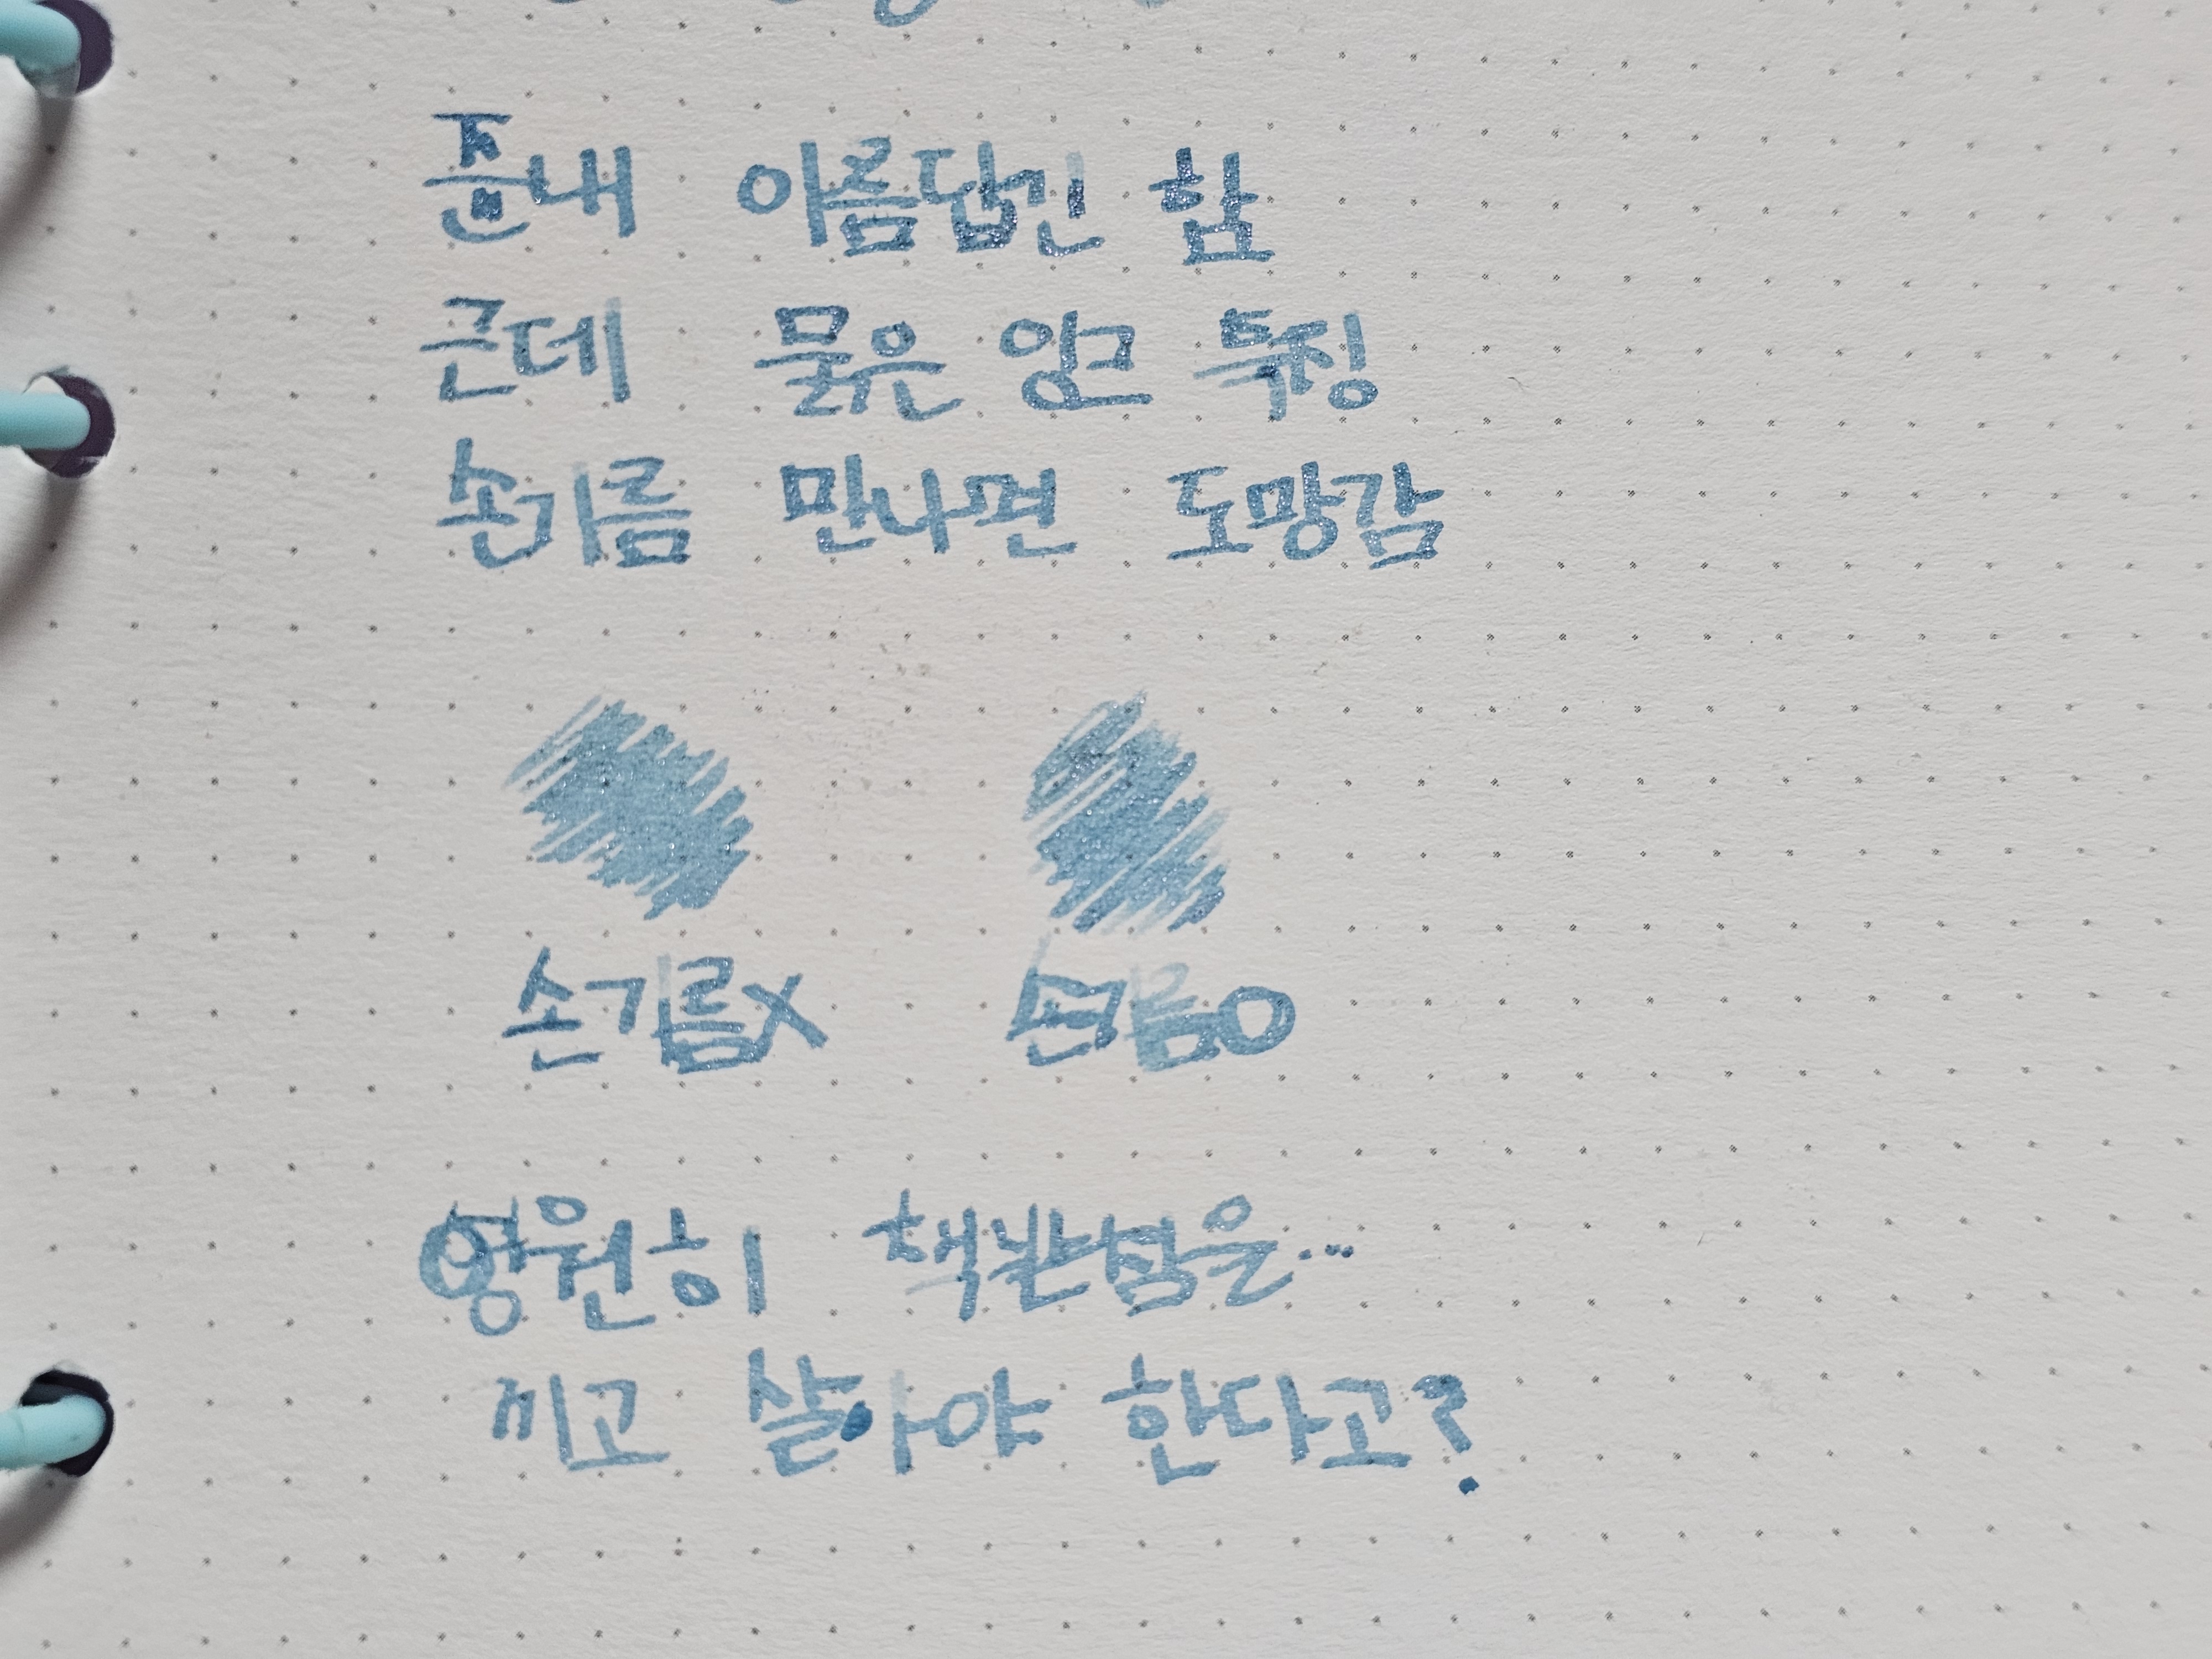 존내 아름답긴 함
근데 묽은 잉크 특징
손기름 만나면 도망감
손기름X 손기름O
영원히 책받침을...
끼고 살아야 한다고?